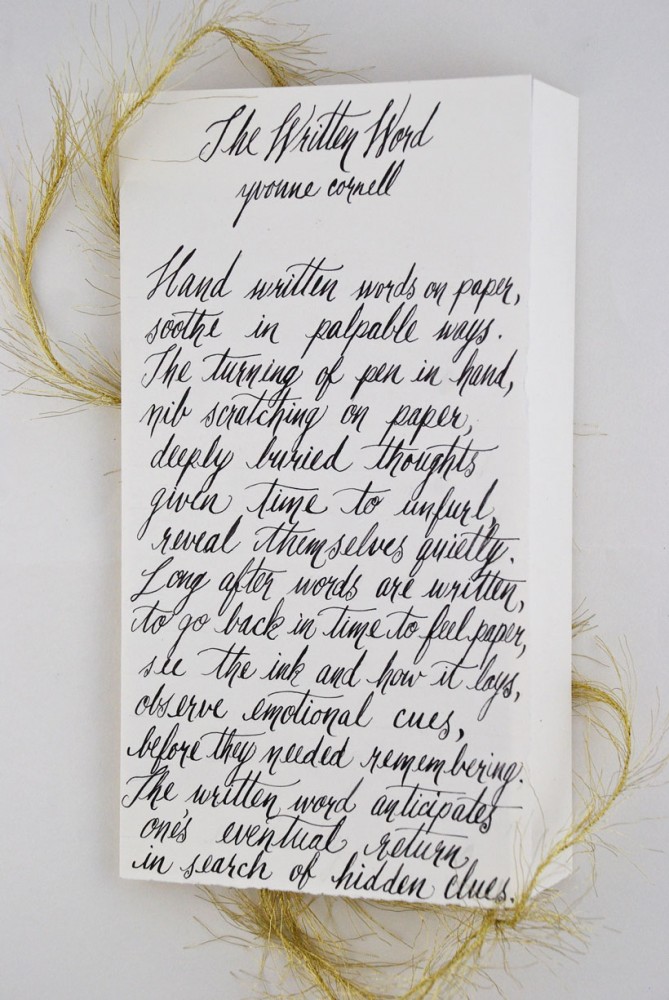 The Written Word
yvonne cornell
Hand written words on paper,
soothe in palpable ways.
The turning of pen in hand,
nib scratching on paper,
deeply buried thoughts
given time to unfurl,
reveal themselves quietly.
Long after words are written,
to go back in time to feel paper,
see the ink and how it lays,
observe emotional cues,
before they needed remembering.
The written word anticipates
one's eventual return
in search of hidden clues.